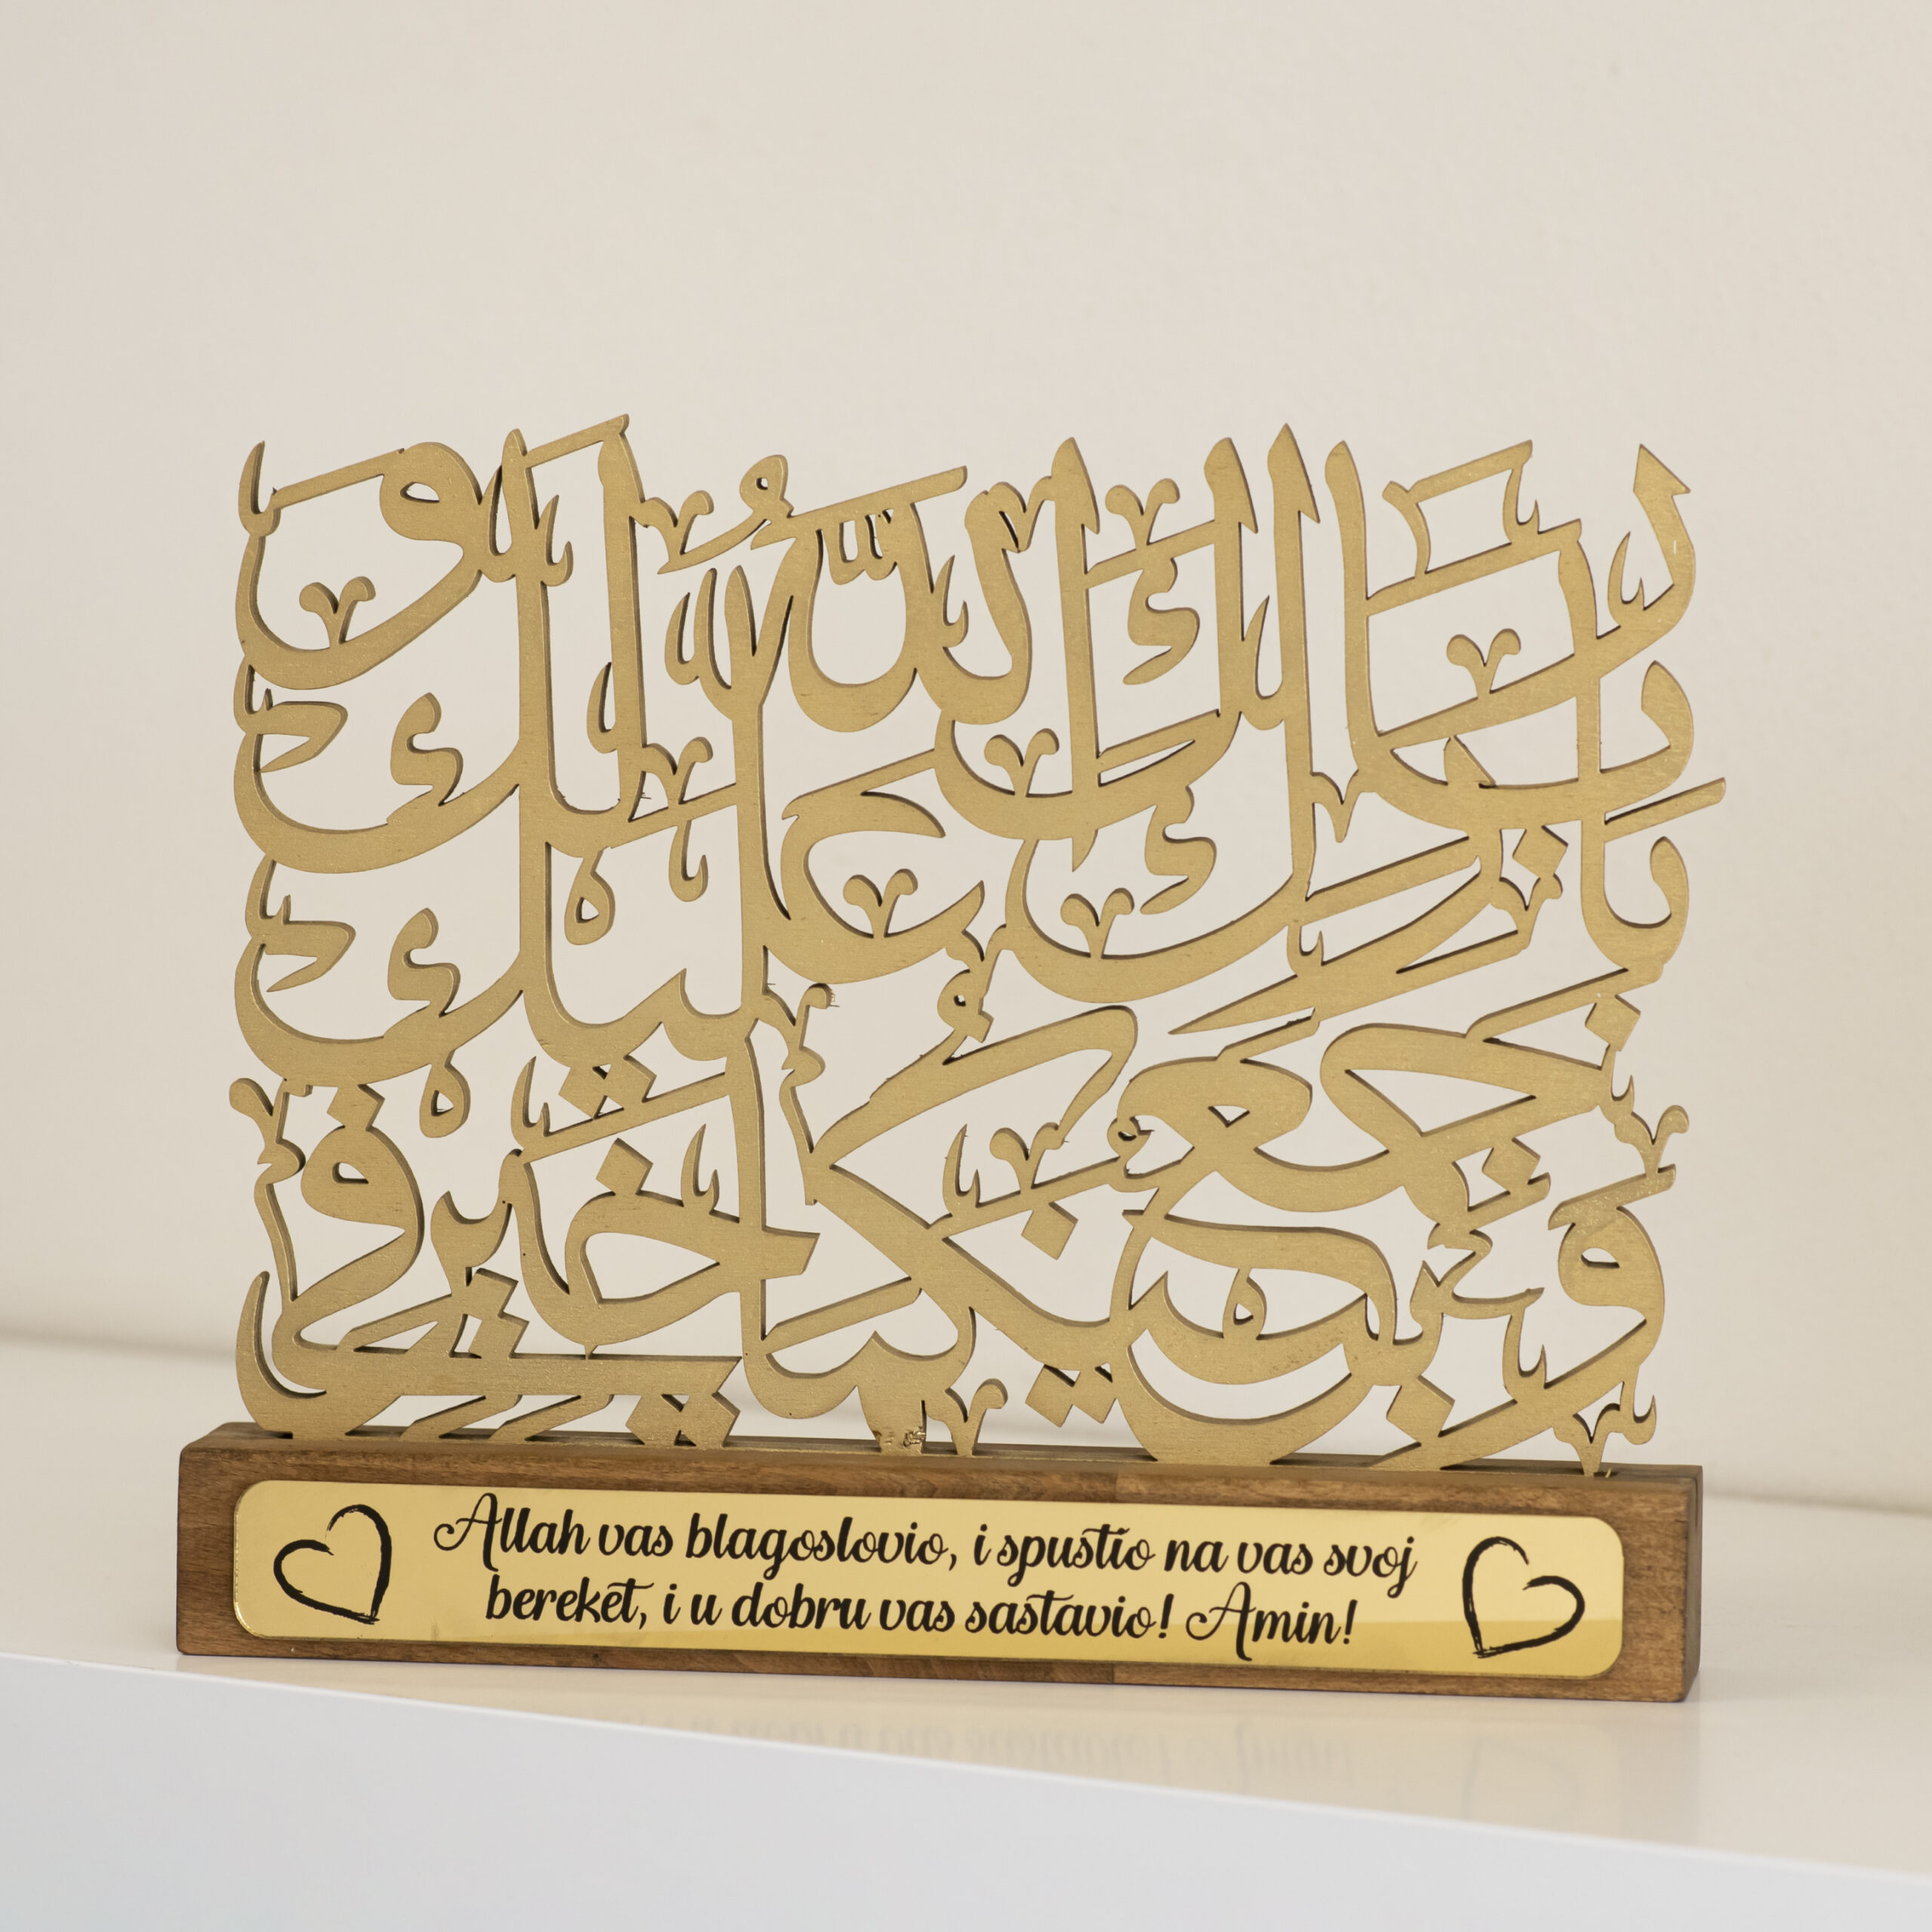 بَارَكَ اللَّهُ لَكَ وَ
بَارَكَ عَلَيْكَ
وَجَمَعَ بَيْنَكُمَا فِي خَيْرٍ
Allah vas blagoslovio, i spustio na vas svoj
bereket, i u dobru vas sastavio! Amin!